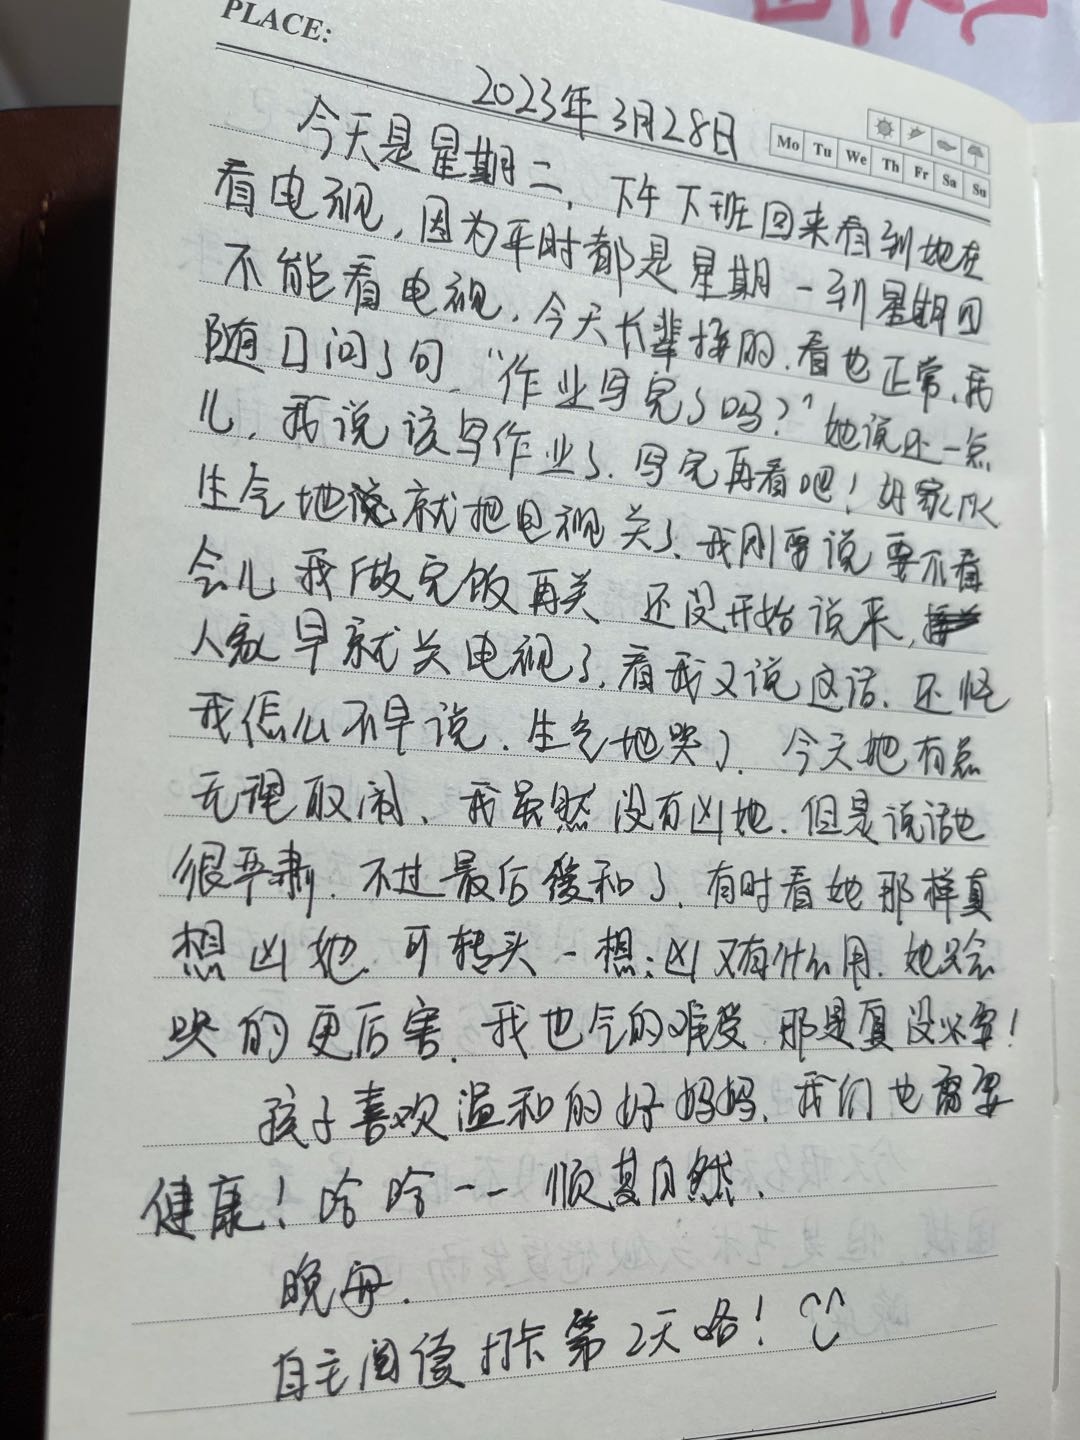 PLACE:
2023年3月28日
Mo Tu We Th Fr Sa Su
今天是星期二，下午下班回来看到她在
看电视，因为平时都是星期一到星期四
不能看电视，今天长辈接的，看也正常，我
随口问了句，“作业写完了吗？”她说还一点
儿，我说该写作业了，写完再看吧！好家伙
生气地说就把电视关了，我刚要说要不看
会儿我做完饭再关 还没开始说来，
人家早就关电视了，看我又说这话，还怪
我怎么不早说，生气地哭了，今天她有点
无理取闹，我虽然没有凶她，但是说话也
很严肃，不过最后缓和了，有时看她那样真
想凶她，可转头一想：凶又有什么用，她只会
哭的更厉害，我也气的难受，那是真没必要！
孩子喜欢温和的好妈妈，我们也需要
健康！哈哈-- 顺其自然，
晚安.
自主阅读打卡第2天咯！